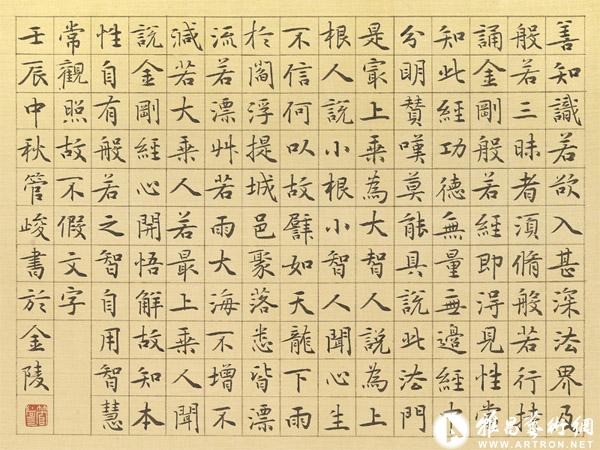 善知識若欲入甚深法界及
般若三昧者須脩般若行持
誦金剛般若經即得見性當
知此經功德無量無邊經中
分明贊嘆莫能具說此法門
是冣上乘為大智人說為上
根人說小根小智人聞心生
不信何以故譬如天龍下雨
於閻浮提城邑聚落悉皆漂
流若漂艸若雨大海不增不
減若大乘人若最上乘人聞
說金剛經心開悟解故知本
性自有般若之智自用智慧
常觀照故不假文字
壬辰中秋管峻書於金陵
雅昌藝術網
WWW.ARTRON.NET